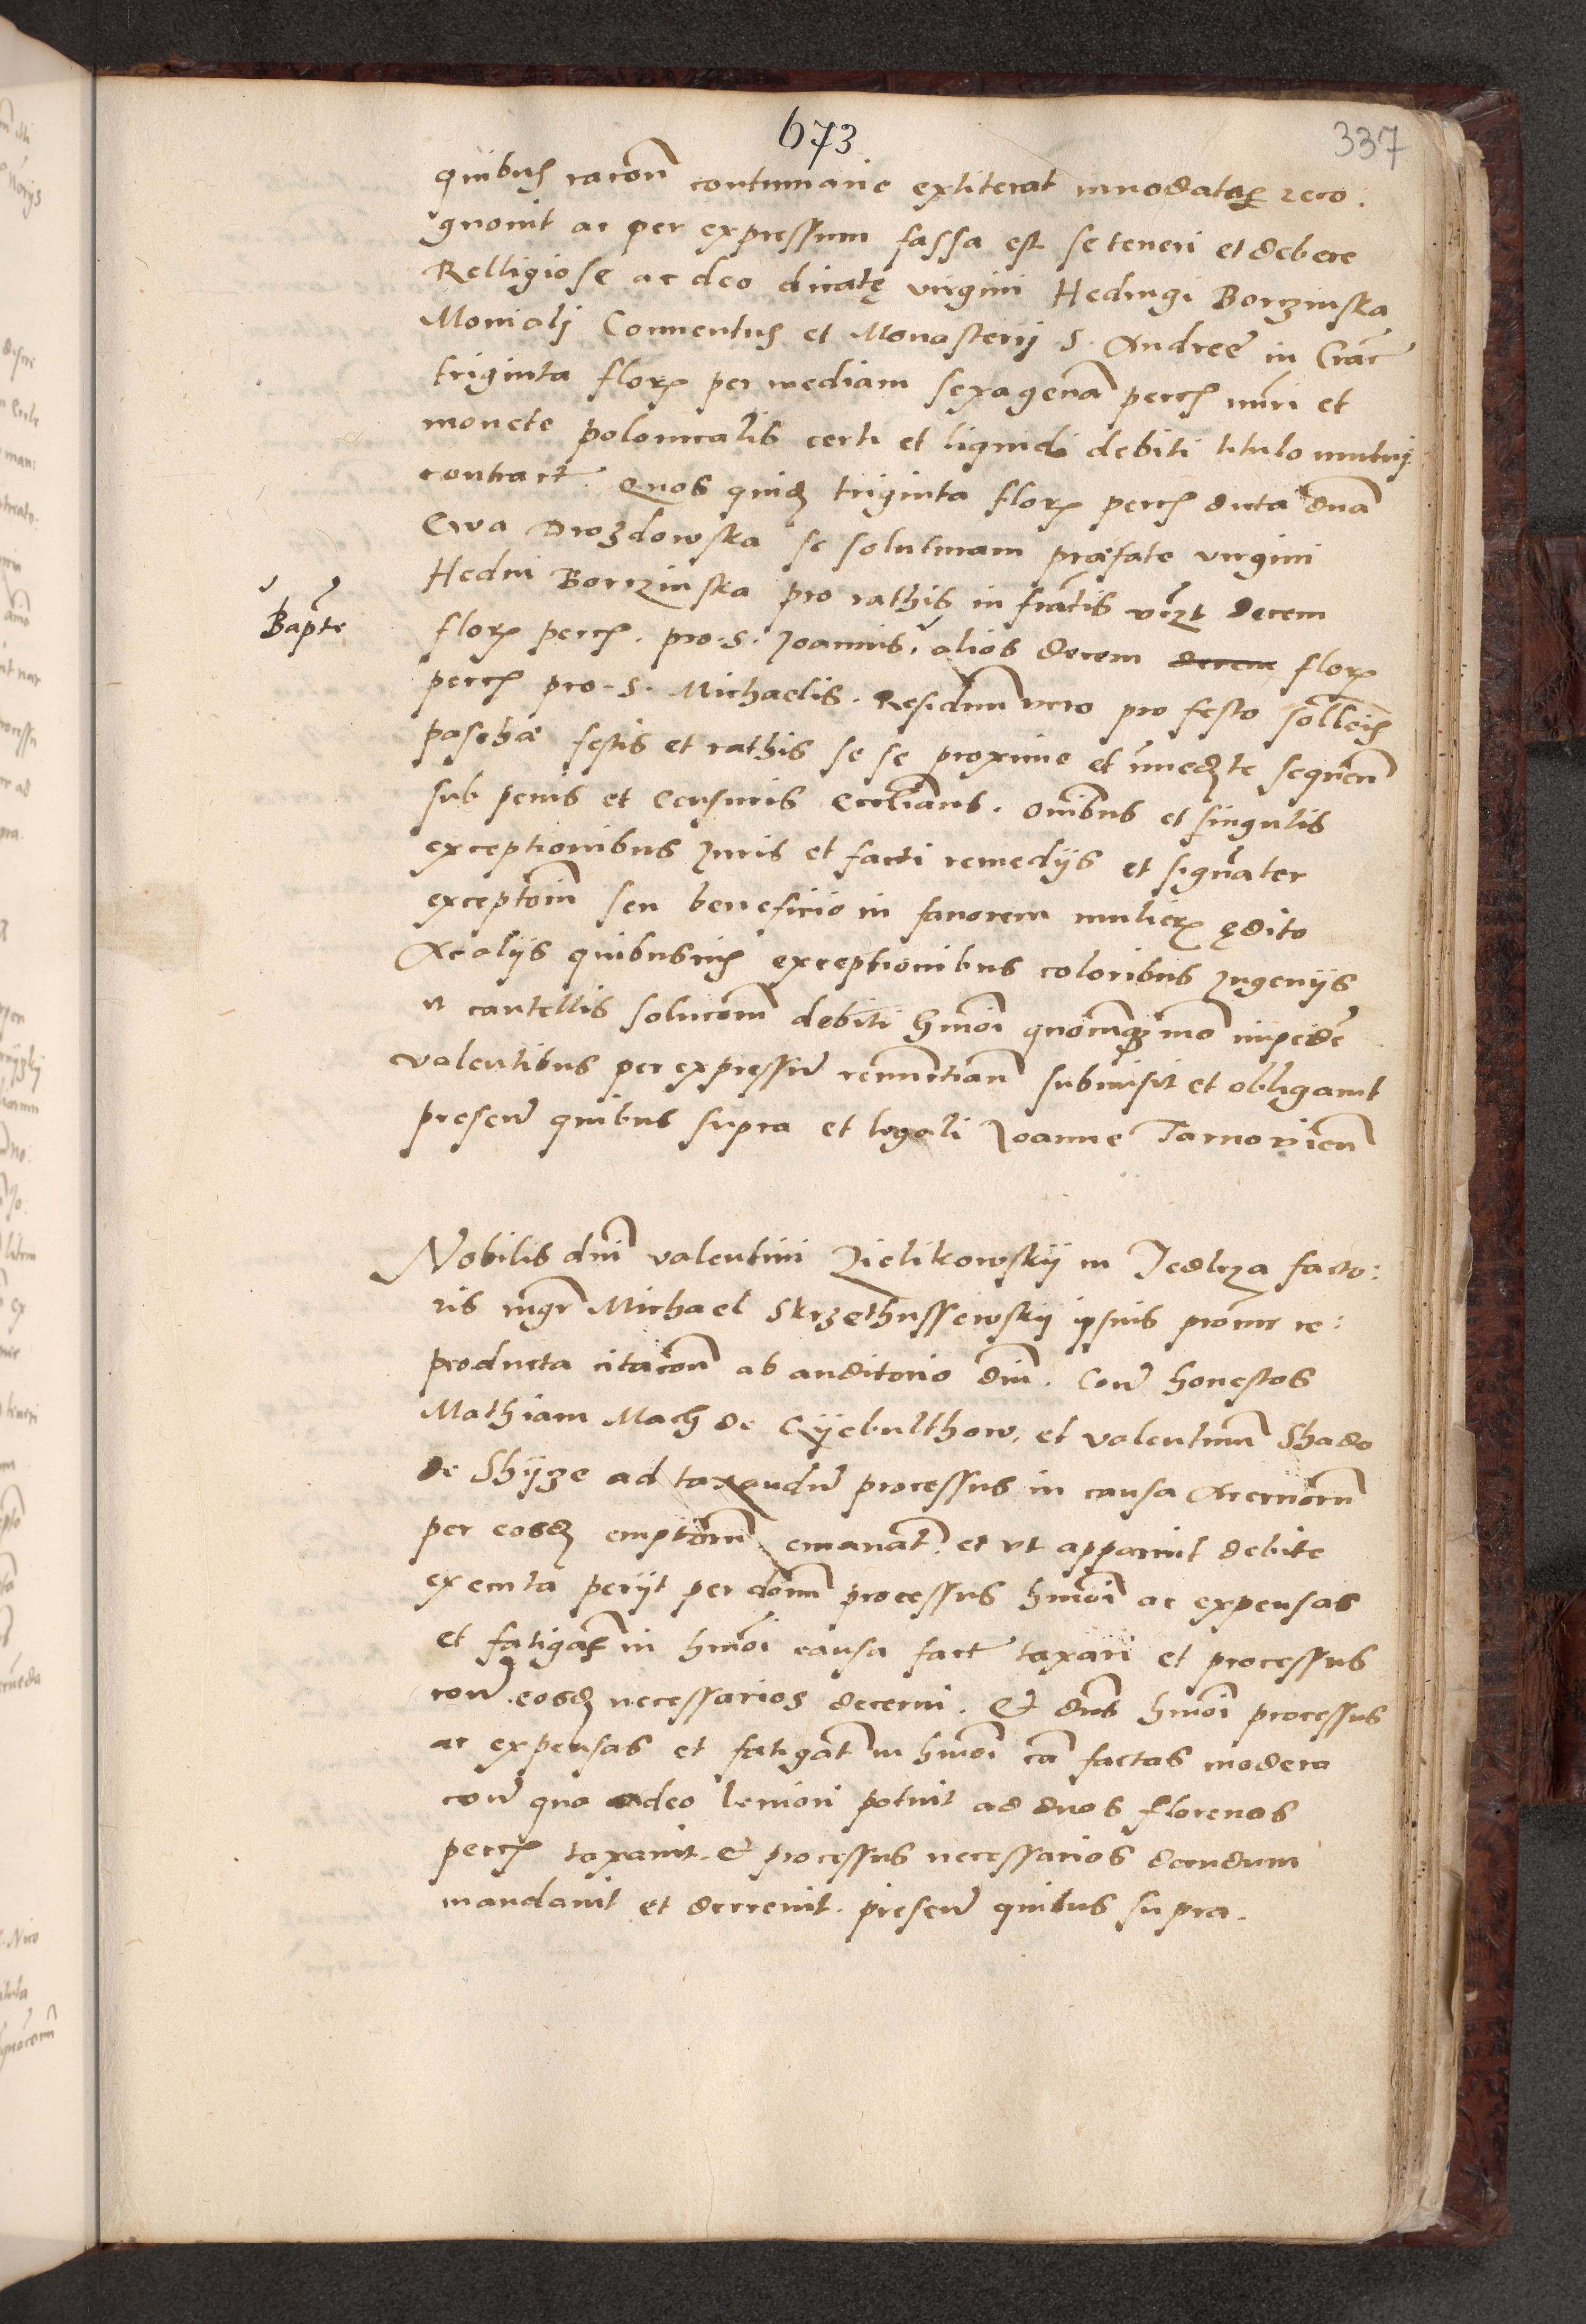 673
337
quibus racōn contumacie extiterat innodatar reco:
gnovit ac per expressum fassa est se teneri et debere
Relligiose ac deo dicatę virgini Hedvigi Borzinska
Moniali Conventus et Monasterij S. Andreę in Crac̄
triginta flor per mediam sexagenā pecc̄ nūri et
monete polonicalis certi et liquidi debiti titulo mutuj
contract. Quos quidē triginta flor pecc̄ dicta dn̄a
Ewa Drozdowska se soluturam præfate virgini
Hedvi Borczinska pro rathis infrātis vczt decem
Bapte
flor pecc̄. pro. S. Joannis, alios decem decem flor
pecc̄ pro. S. Michaelis. Residuū vero pro festo sollēis
paschæ festis et rathis se se proxime et īmedte sequeñ
sub penis et Censuris eccliānis. oīnibus et singulis
exceptionibus Juris et facti remedijs et signāter
exceptōni seu beneficio in favorem mulier ędito
Ac alijs quibusvis exceptionibus coloribus Jngenijs
et cautellis solucōnem debiti hmōi quomōq̨ mō impedē
valentibus per expressū renunctiañ submisit et obligavit
preseñ quibus supra et legali Joanne Tarnovieñ
Nobilis dn̄i valentini Zielikowskij in Jedlcza facto:
ris mgr Michael Skrzethussewskij ipsius procur re:
producta citacōn ab auditorio dn̄i. Coñ honestos
Mathiam Mach de Cijebulthow, et valentinū Shado
de Shijze ad taxandū processus in causa Acervorū
per eosdē emptōrum emanat. et ut apparuit debite
executa petijt per dōnum processus hmōi ac expensas
et fatigac̄ in hmōi causa fact taxari et processus
coñ. eosdē necessarios decerni. Et dn̄s hmōi processus
ac expensas et fatigat in hmōi cā factas modera
coñ quo adeo leniori potuit ad duos florenos
pecc̄ taxavit. et processus necessarios dandum
mandavit et decrevit. preseñ quibus supra.